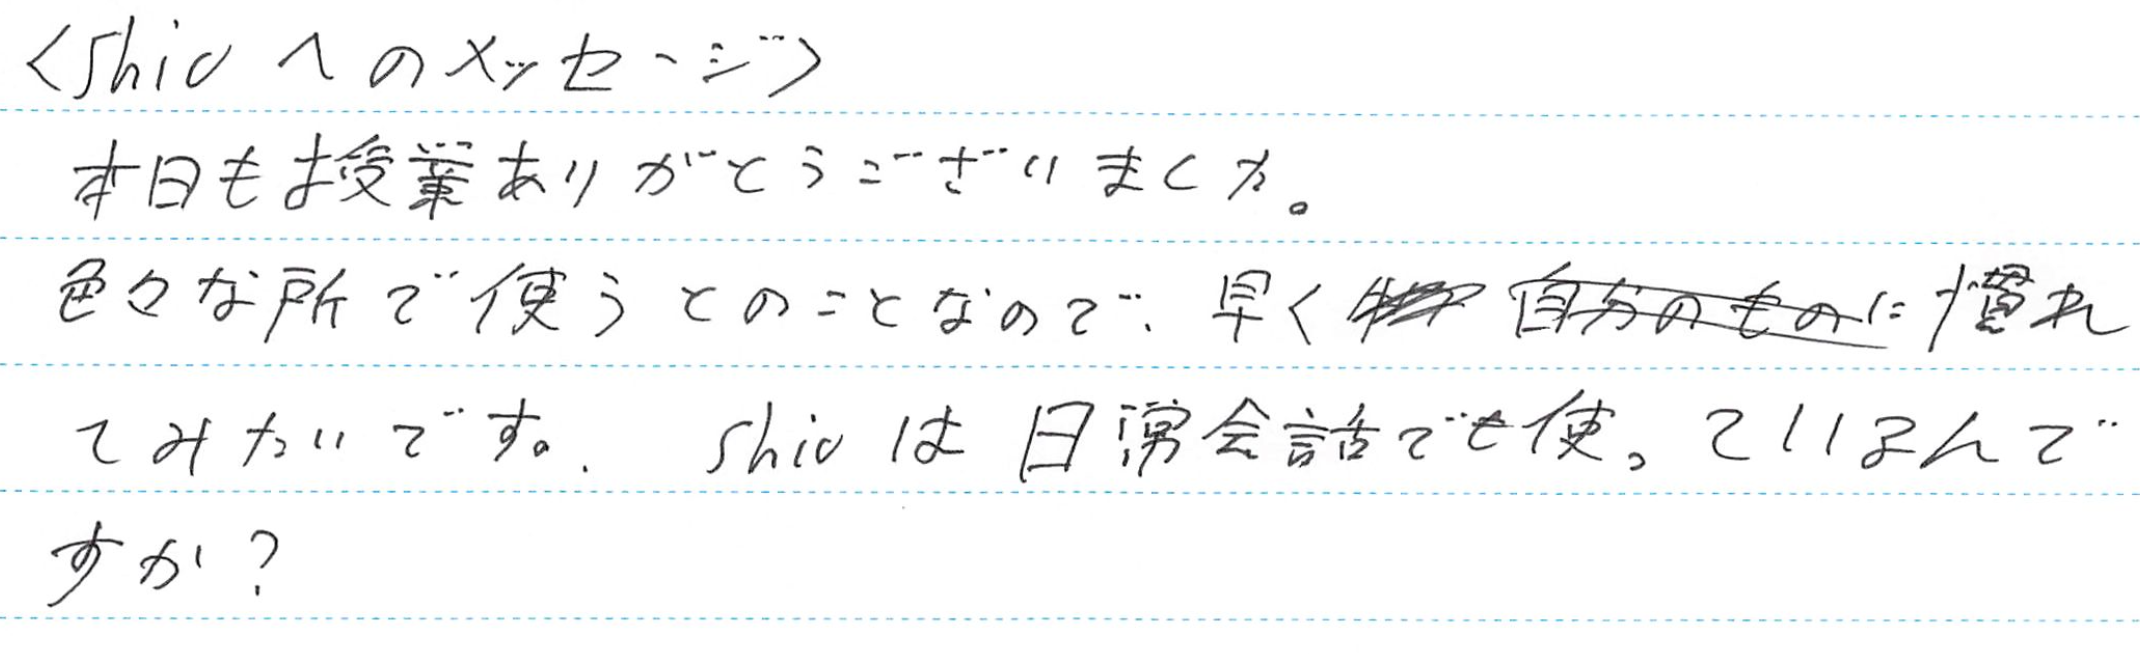 <Shioへのメッセージ>
本日もお授業ありがとうございました。
色々な所で使うとのことなので、早く 自分のものに慣れ
てみたいです。. Shioは日常会話でも使っているんで
すか?